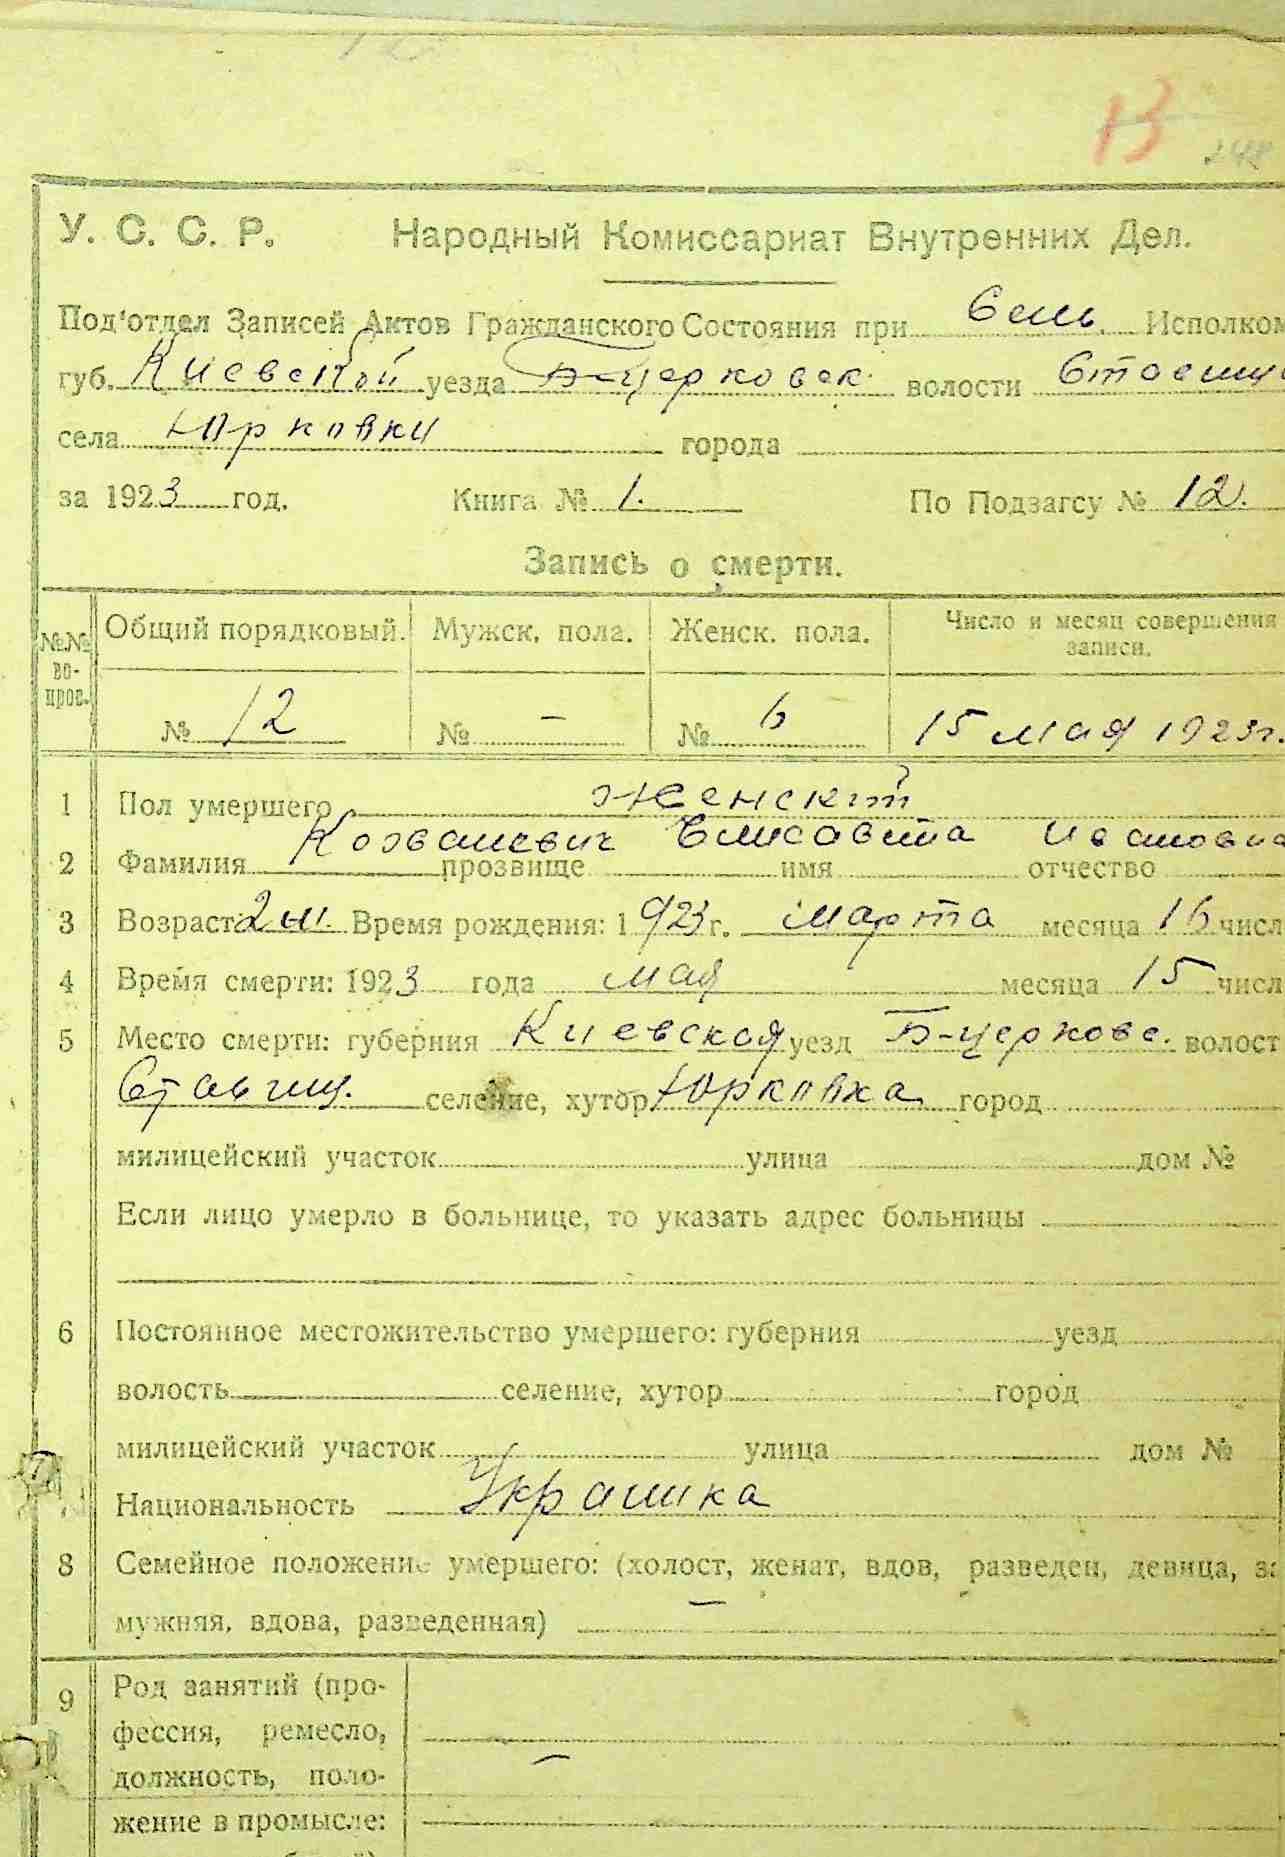 13 248
У. С. С. Р. Народный Комиссариат Внутренних Дел.
Под‘отдел Записей Актов Гражданского Состояния при Сель. Исполком
губ. Киевской уезда Б-церковск. волости
села Юрковки города
за 1923 год. Книга № 1. По Подзагсу № 12.
Запись о смерти.
№№ во- прос. Общий порядковый. Мужск. пола. Женск. пола. Число и месяц совершения записи.
№ 12 № – № 6 15 мая 1923г.
1 Пол умершего Женский
Елисавета Ивановна
2 Фамилия прозвище имя отчество
3 Возраст 2 м. Время рождения: 1923 г. марта месяца 16 числ
4 Время смерти: 1923 года мая месяца 15 числ
5 Место смерти: губерния Киевская уезд Б-церковс. волост
Ставищ. селение, хутор Юрковка город
милицейский участок улица дом №
Если лицо умерло в больнице, то указать адрес больницы
6 Постоянное местожительство умершего: губерния уезд
волость селение, хутор город
милицейский участок улица дом №
7 Национальность Украинка
8 Семейное положение умершего: (холост, женат, вдов, разведен, девица, за
мужняя, вдова, разведенная) –
9 Род занятий (про-
фессия, ремесло,
должность, поло- –
жение в промысле: